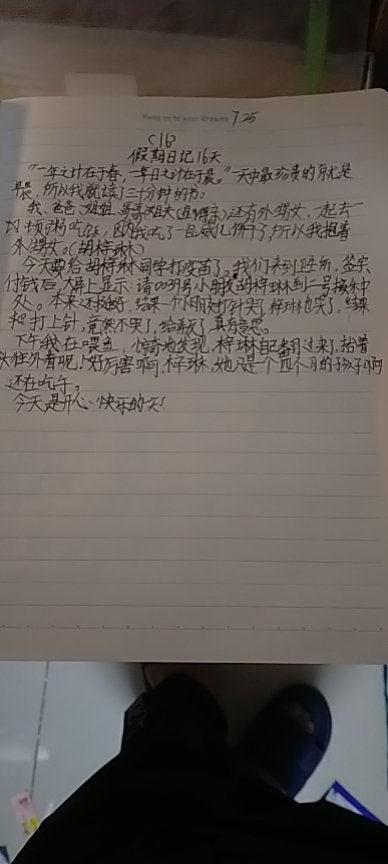 7.25
(16)
假期日记16天
"一年之计在于春,一年日之计在于晨。"一天中最珍贵的就是
早晨,所以我就读了三十分钟的书。
我、爸爸、姐姐、哥哥姐夫还有外甥女,一起去
吃饭,因我吃了一且威化饼干了,所以我抱着
外甥女。(胡梓琳)
今天要给胡梓琳同学打疫苗了。我们来到医所,签字
付钱后,大屏上显示:请0039号小朋友胡梓琳到二号接种
处。本来还挺好,结果一个小朋友打针哭了,梓琳也哭了,结果
打上针,竟然不哭了,给我了真有意思。
下午我在喂鱼,惊奇地发现,梓琳自己翻过来了,抬着
头往外看呢!好厉害啊,梓琳,她只是个四个月的孩子啊
还在吃
今天是开心、快乐的一天!